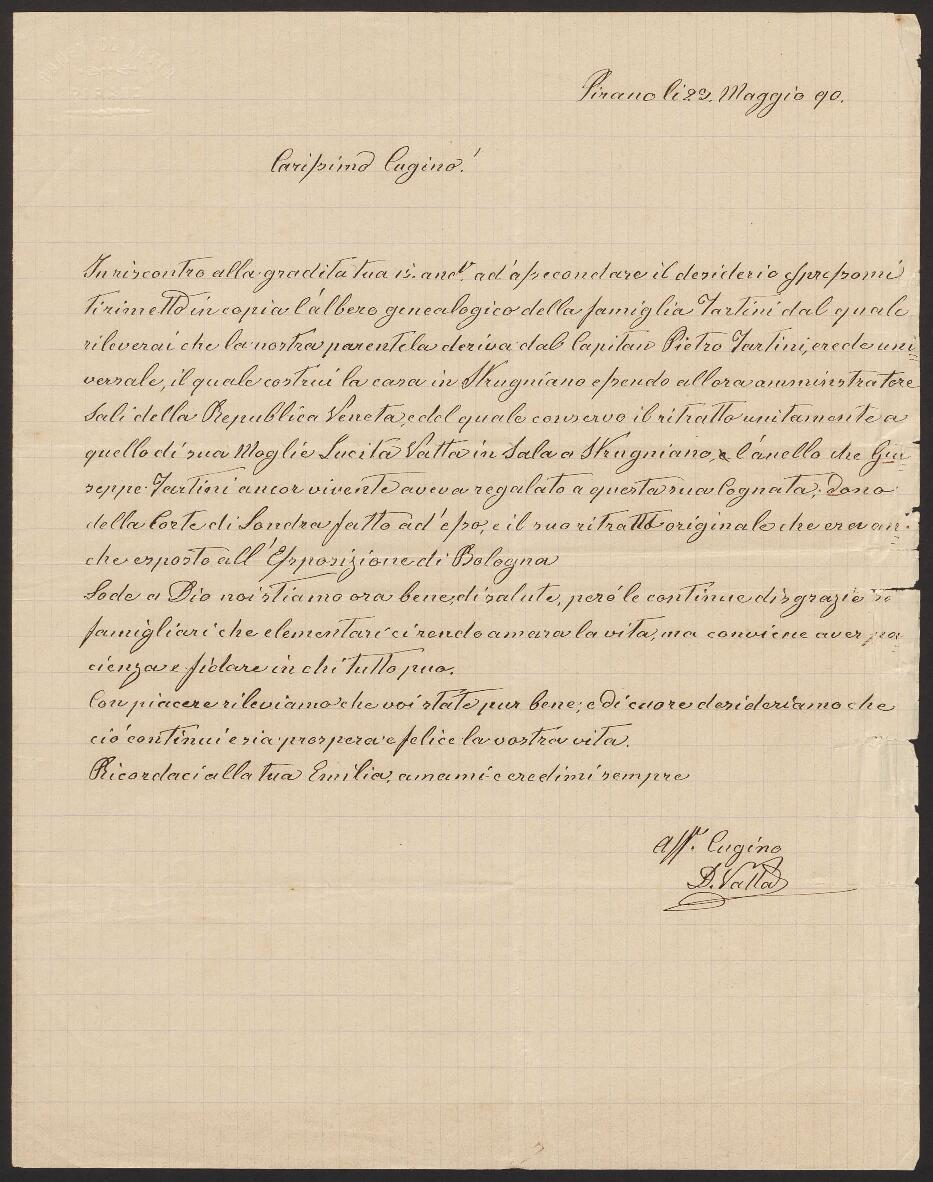 Pirano li 23. Maggio 90.
Carissimo Cugino!
In riscontro alla gradita tua 15. andte. ad'assecondare il desiderio espressomi
ti rimetto in copia l'albero genealogico della famiglia Tartini dal quale
rileverai che la nostra parentela deriva dal Capitan Pietro Tartini, erede uni
versale, il quale costrui la casa in Strugniano essendo allora amministratore
Sali della Republica Veneta, e del quale conservo il ritratto unitamente a
quello di sua Moglie Lucita Vatta in Sala a Strugniano, e l'anello che Giu
seppe Tartini ancor vivente aveva regalato a questa sua Cognata, Dono
della Corte di Londra fatto ad'esso, e il suo ritratto originale che era an:
che esposto all'Esposizione di Bologna
Lode a Dio noi stiamo ora bene, di salute, peró le continue disgrazie si
famigliari che elementari ci rendo amara la vita, ma conviene aver pa
cienza e fidare in chi tutto puo.
Con piacere rileviamo che voi state pur bene; e di cuore desideriamo che
ció continui e sia prospera e felice la vostra vita.
Ricordaci alla tua Emilia, amami e credimi sempre
Affto. Cugino
D. Vatta